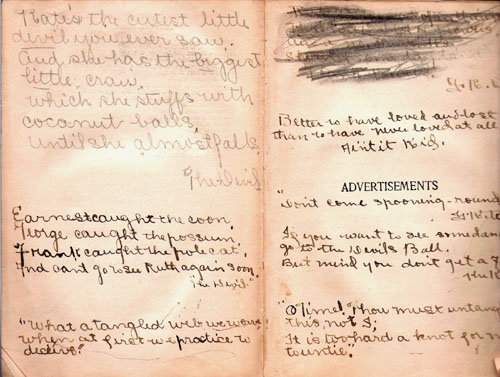 Kate's the cutest little
devil you ever saw,
And she has the biggest
little craw,
which she stuffs with
cocoanut-balls,
until she almost falls.
The Devil
Earnest caught the coon,
George caught the possum,
Frank caught the pole cat,
And can't go to see Ruth again soon."
The Devil."
"What a tangled web we weave
when at first we practice to
deceive."
Better to have loved and lost
than to have never loved at all
Ain't it Kid.
ADVERTISEMENTS
"Don't come spooning-round
If you want to see
go to the Devils Ball.
But mind you don't get a
"O Time! Thou must untangle
this, not I;
It is too hard a knot for
to untie."